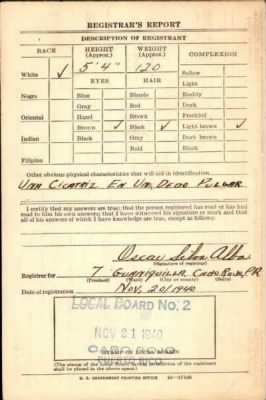 REGISTRAR'S REPORT
DESCRIPTION OF REGISTRANT
RACE HEIGHT (Approx.) WEIGHT (Approx.) COMPLEXION
White ✓ 5' 4" 120 Sallow
EYES HAIR Light
Negro Blue Blonde Ruddy
Gray Red Dark
Oriental Hazel Brown Freckled
Brown ✓ Black ✓ Light brown ✓
Indian Black Gray Dark brown
Bald Black
Filipino
Other obvious physical characteristics that will aid in identification
Una Cicatriz En Un Dedo Pulgar
I certify that my answers are true; that the person registered has read or has had read to him his own answers; that I have witnessed his signature or mark and that all of his answers of which I have knowledge are true, except as follows:
Oscar Silva Alba
(Signature of registrar)
Registrar for 7 Guaniquilla Cabo Rojo, P.R.
(Precinct) (Ward) (City or county) (State)
Date of registration Nov. 20/1940
LOCAL BOARD No. 2
NOV 21 1940
CABO ROJO
PUERTO RICO
STAMP OF LOCAL BOARD
(The stamp of the Local Board having jurisdiction of the registrant shall be placed in the above space.)
U. S. GOVERNMENT PRINTING OFFICE 16-17105